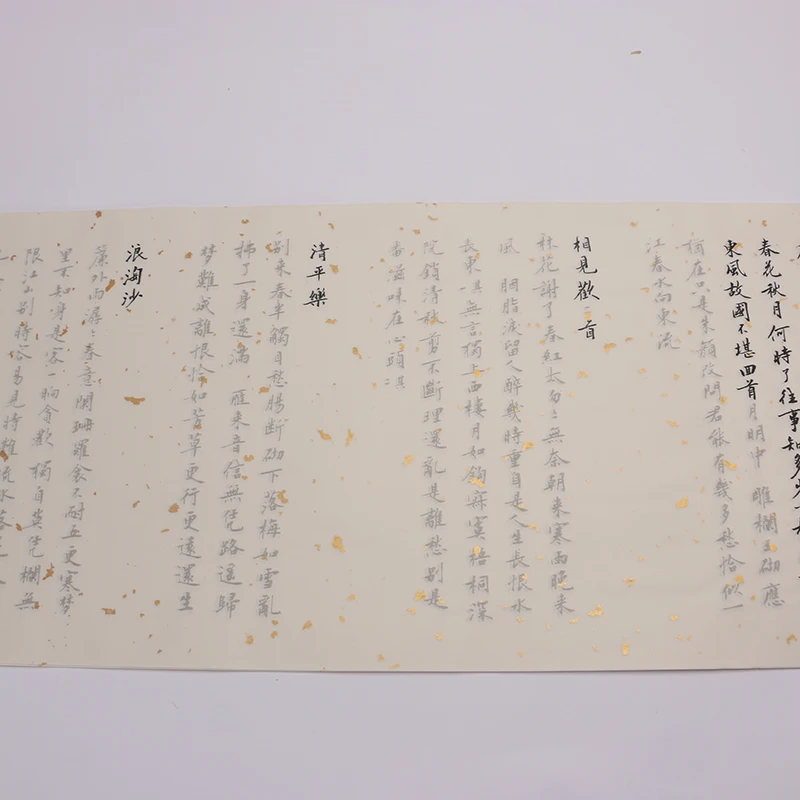 春花秋月何時了往事知多少
東風故國不堪回首月明中 雕欄玉砌應
猶在只是朱顏改問君能有幾多愁恰似一
江春水向東流
相見歡二首
林花謝了春紅太匆〻無奈朝來寒雨晚來
風 胭脂淚留人醉幾時重自是人生長恨水
長東 其一無言獨上西樓月如鈎寂寞梧桐深
院鎖清秋剪不斷理還亂是離愁別是
番滋味在心頭 其二
清平樂
別來春半觸目愁腸斷砌下落梅如雪亂
拂了一身還滿 雁來音信無凭路遥歸
夢難成離恨恰如芳草更行更遠還生
浪淘沙
簾外雨潺〻春意闌珊羅衾不耐五更寒梦
里不知身是客一晌貪歡 獨自莫凭欄無
限江山別時容易見時難流水落花